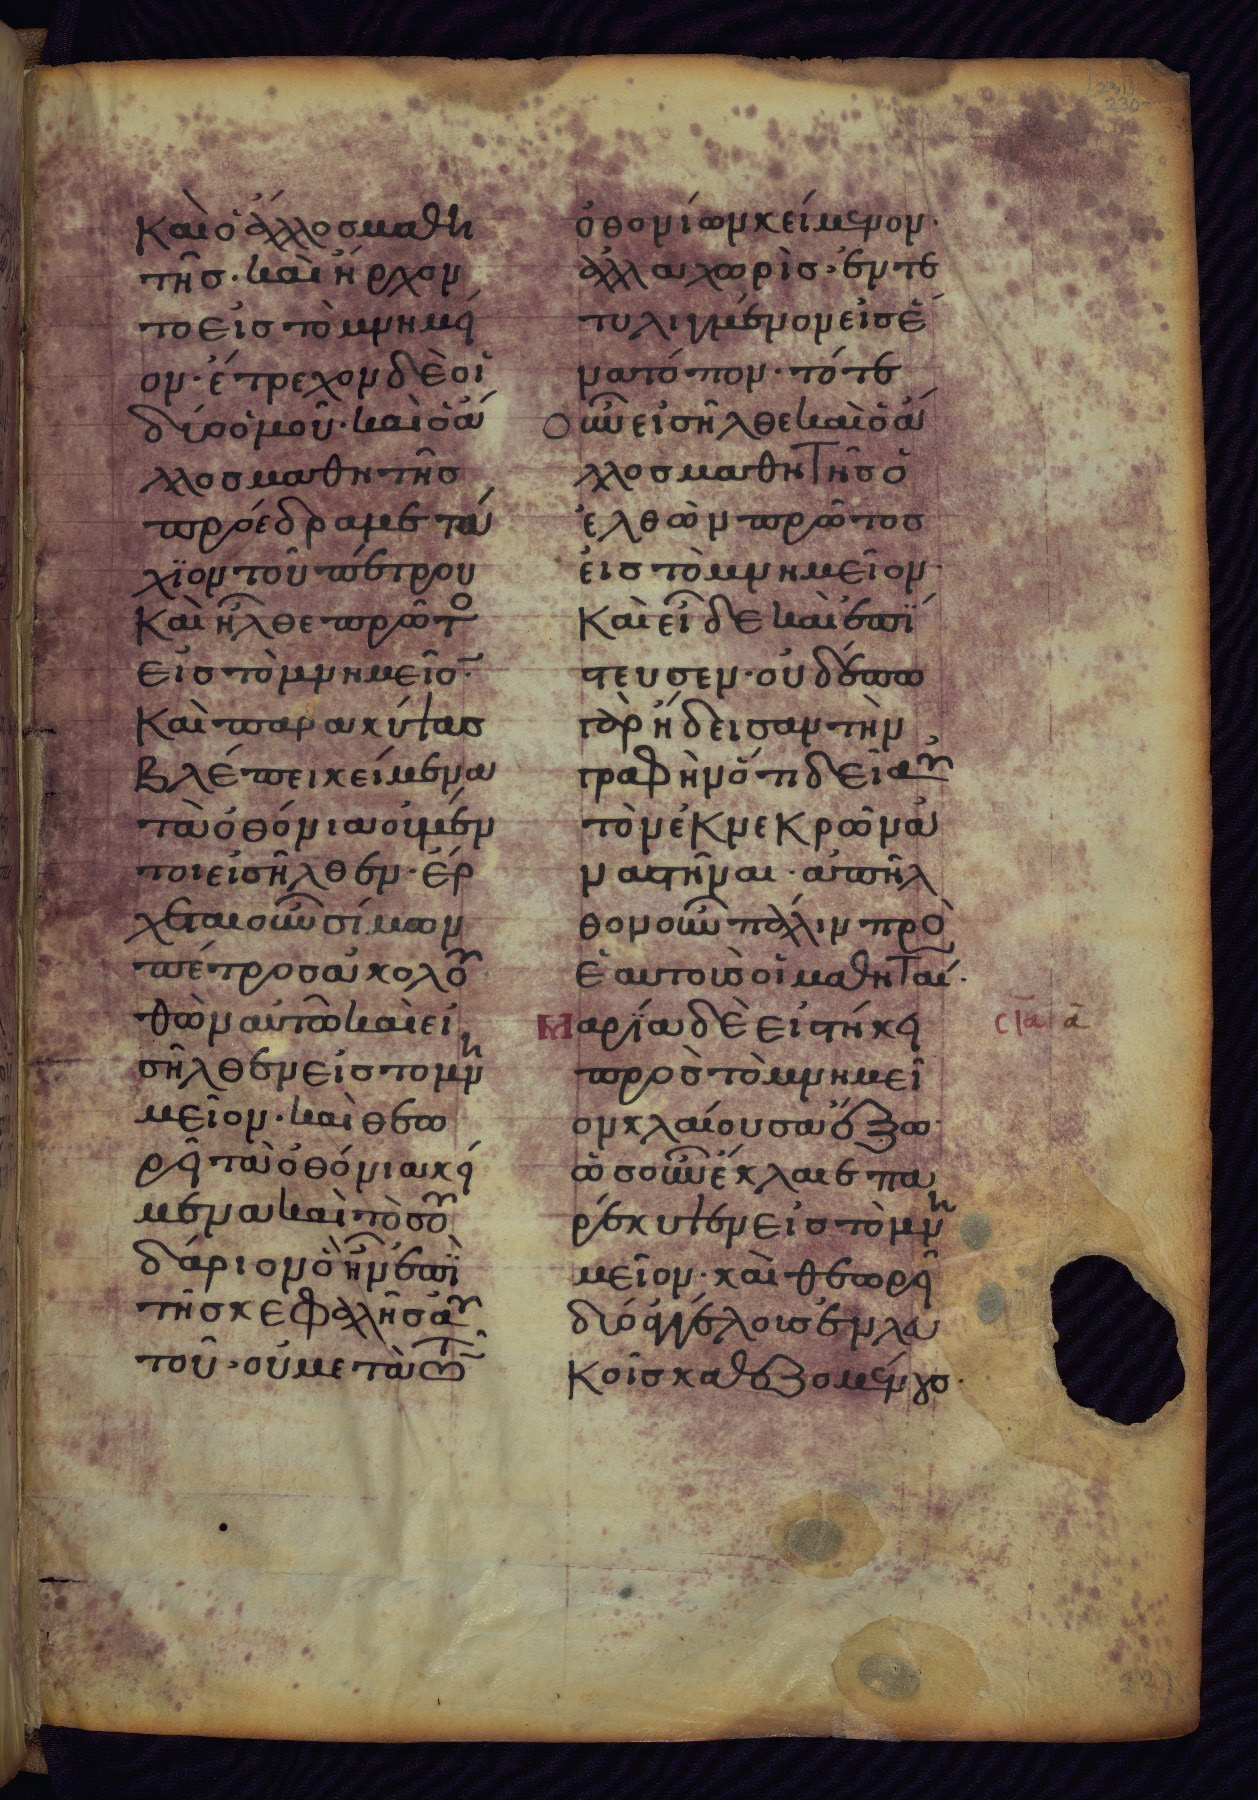 καὶ ὁ ἄλλος μαθη
τῆς· καὶ ἤρχον
το εἰς τὸ μνημεῖ
ον· ἔτρεχον δὲ οἱ
δύο ὁμοῦ· καὶ ὁ ἄ
λλος μαθητῆς
προέδραμε τά
χϊον τοῦ πέτρου
καὶ ἦλθε πρῶτο
εἰς τὸ μνημεῖο·
καὶ παρακύψας
βλέπει κείμενα
τὰ ὀθόνια οὐ μέν
τοι εἰσῆλθεν· ἔρ
χεται οὖν σίμων
πέτρος ἀκολου
θῶν αὐτῶ καὶ εἰ
σῆλθεν εἰς το μνη
μεῖον· καὶ θεω
ρεῖ τὰ ὀθόνια κεί
μενα καὶ τὸ σου
δάριον ὃ ἦν ἐπὶ
τῆς κεφαλῆς αὐ
τοῦ, οὐ μετὰ τῶν
ὀθονίων κείμενον·
ἀλλὰ χωρὶς, ἐντε
τυλιγμένον εἰς ἕ
να τόπον· τότε
οὖν εἰσῆλθε καὶ ὁ ἄ
λλος μαθητῆς ὁ
ἐλθὼν πρῶτος
εἰς τὸ μνημεῖον·
καὶ εἶδε καὶ ἐπί
στευσεν· οὐδέπω
γὰρ ἤδεισαν τὴν
γραφὴν ὅτι δεῖ αὐ
τὸν ἐκ νεκρῶν ἀ
ναστῆναι· ἀπῆλ
θον οὖν πάλιν πρὸ
ἑαυτοὺς οἱ μαθηταί·
Μαρία δὲ εἱστήκει
πρὸς τὸ μνημεῖ
ον κλαίουσα ἔξω·
ὡς οὖν ἔκλαιε πα
ρέκυψεν εἰς τὸ μνη
μεῖον· καὶ θεωρεῖ
δύο ἀγγέλους ἐν λευ
κοῖς καθεζομένους·
σια α
230